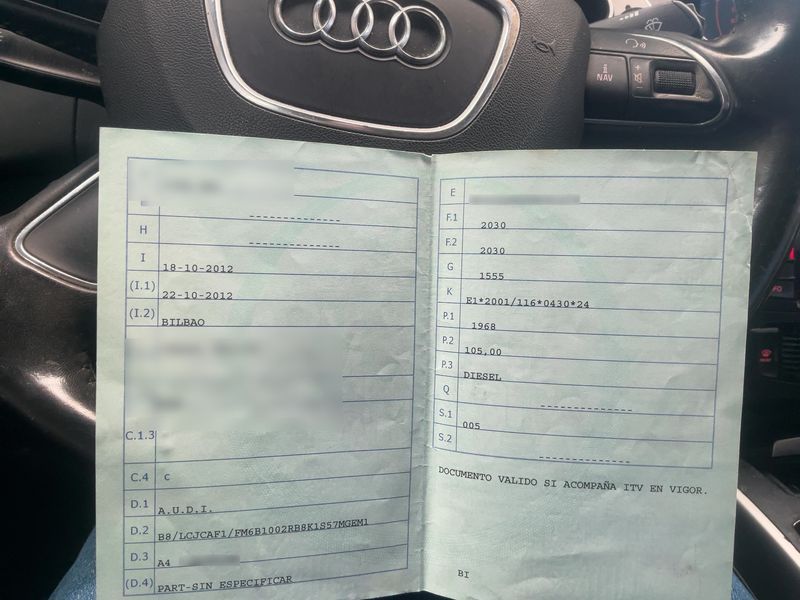 NAV
H
I 18-10-2012
(I.1) 22-10-2012
(I.2) BILBAO
C.1.3
C.4 c
D.1 A.U.D.I.
D.2 B8/LCJCAF1/FM6B1002RB8K1S57MGEM1
D.3 A4
(D.4) PART-SIN ESPECIFICAR
E
F.1 2030
F.2 2030
G 1555
K E1*2001/116*0430*24
P.1 1968
P.2 105,00
P.3 DIESEL
Q
S.1 005
S.2
DOCUMENTO VALIDO SI ACOMPAÑA ITV EN VIGOR.
BI